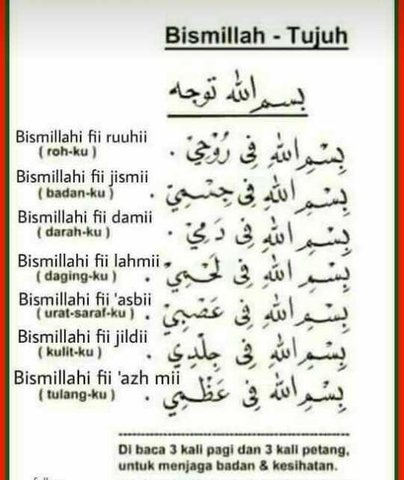 Bismillah - Tujuh
بسم الله توجه
Bismillahi fii ruuhii
( roh-ku )
بِسْمِ اللهِ فِى رُوْحِيْ .
Bismillahi fii jismii
( badan-ku )
بِسْمِ اللهِ فِى جِسْمِيْ .
Bismillahi fii damii
( darah-ku )
بِسْمِ اللهِ فِى دَمِيْ .
Bismillahi fii lahmii
( daging-ku )
بِسْمِ اللهِ فِى لَحْمِيْ .
Bismillahi fii 'asbii
( urat-saraf-ku )
بِسْمِ اللهِ فِى عَصَبِيْ .
Bismillahi fii jildii
( kulit-ku )
بِسْمِ اللهِ فِى جِلْدِي .
Bismillahi fii 'azh mii
( tulang-ku )
بِسْمِ اللهِ فِى عَظْمِيْ .
Di baca 3 kali pagi dan 3 kali petang,
untuk menjaga badan & kesihatan.